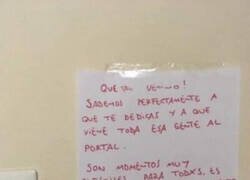 QUE TAL VECINO!
SABEMOS PERFECTAMENTE A
QUE TE DEDICAS Y A QUE
VIENE TODA ESA GENTE AL
PORTAL.
SON MOMENTOS MUY
PARA TODXS, ES